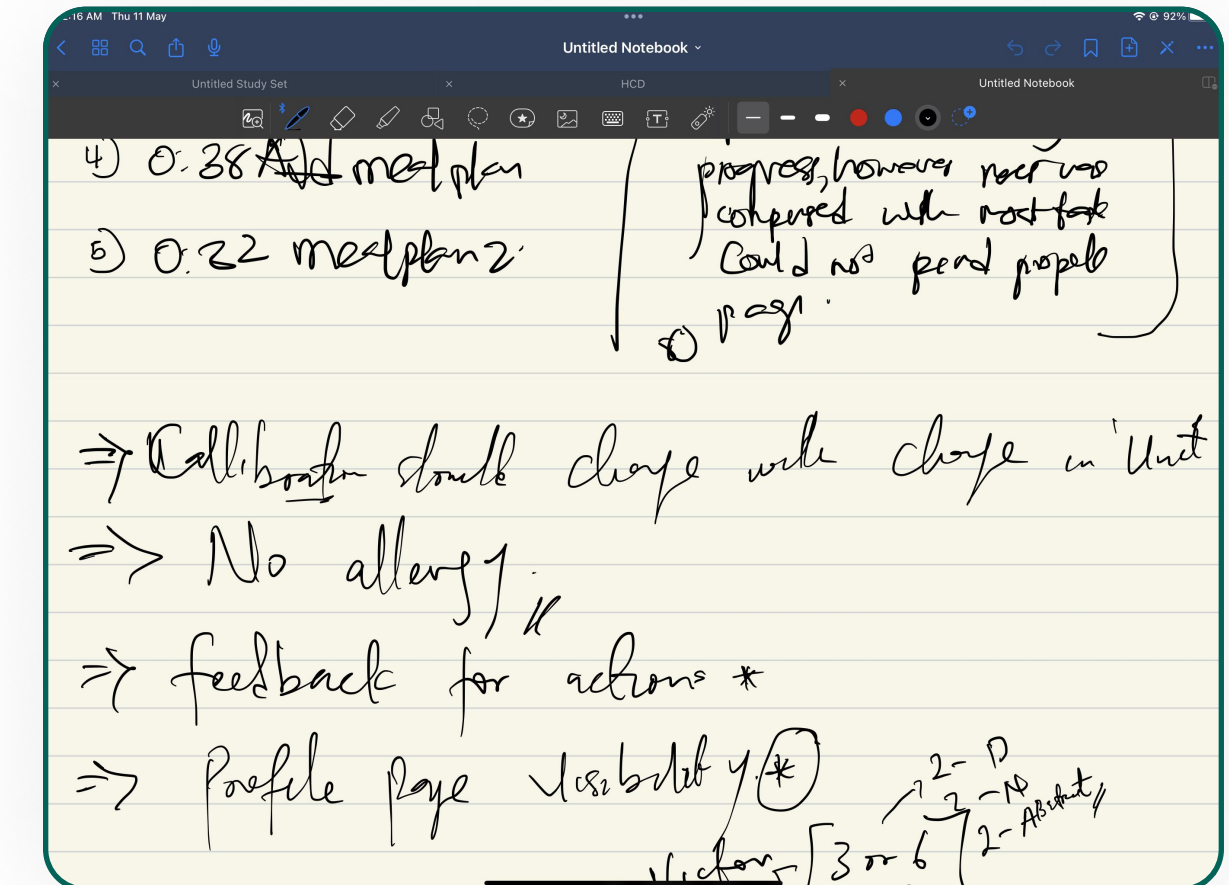 :16 AM Thu 11 May
92%
Untitled Notebook
Untitled Study Set
HCD
Untitled Notebook
4) 0:38 Add meal plan
5) 0:22 meal plan 2.
progress, however
with
Could not
page.
=> Callibration should change with change in 'Unit
=> No allergy.
=> feedback for actions *
=> Profile Page visibility. *
2- D
2 - N
2- Abstract
3 or 6